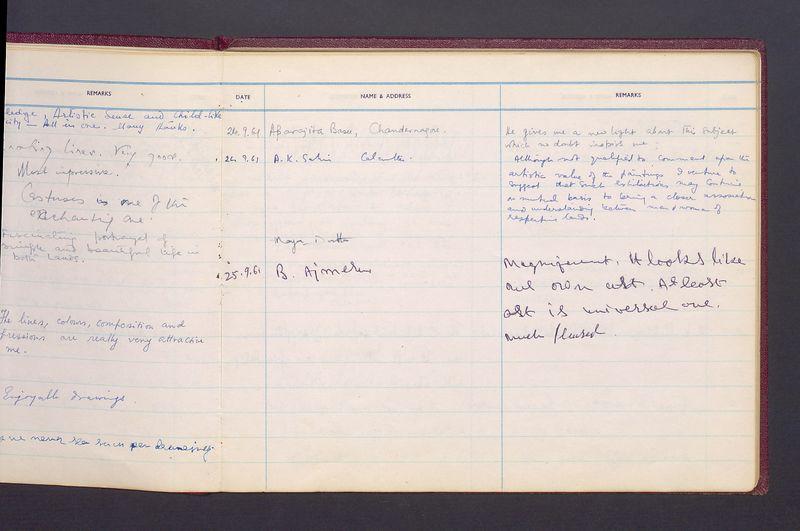 REMARKS
Artistic Sense and Child-like
All in one. Many thanks.
lines. Very good.
Most impressive.
is one of the
enchanting one.
Fascinating portrayal of
simple and beautiful life in
both lands.
The lines, colours, composition and
are really very attractive
me.
Enjoyable drawings.
never see such pen drawings.
DATE NAME & ADDRESS REMARKS
24.9.61 Aparajita Basu, Chandernagore. He gives me a new light about this subject
which no doubt inspires me.
24.9.61 A. K. Calcutta. Although not qualified to comment upon the
artistic value of the paintings I venture to
suggest that such exhibitions may continue
on mutual basis to bring a closer association
and understanding between men & women of
respective lands.
Maya Dutta
25.9.61 B. Ajmera Magnificent. It looks like
our own art. At least
art is universal one.
Much pleased.